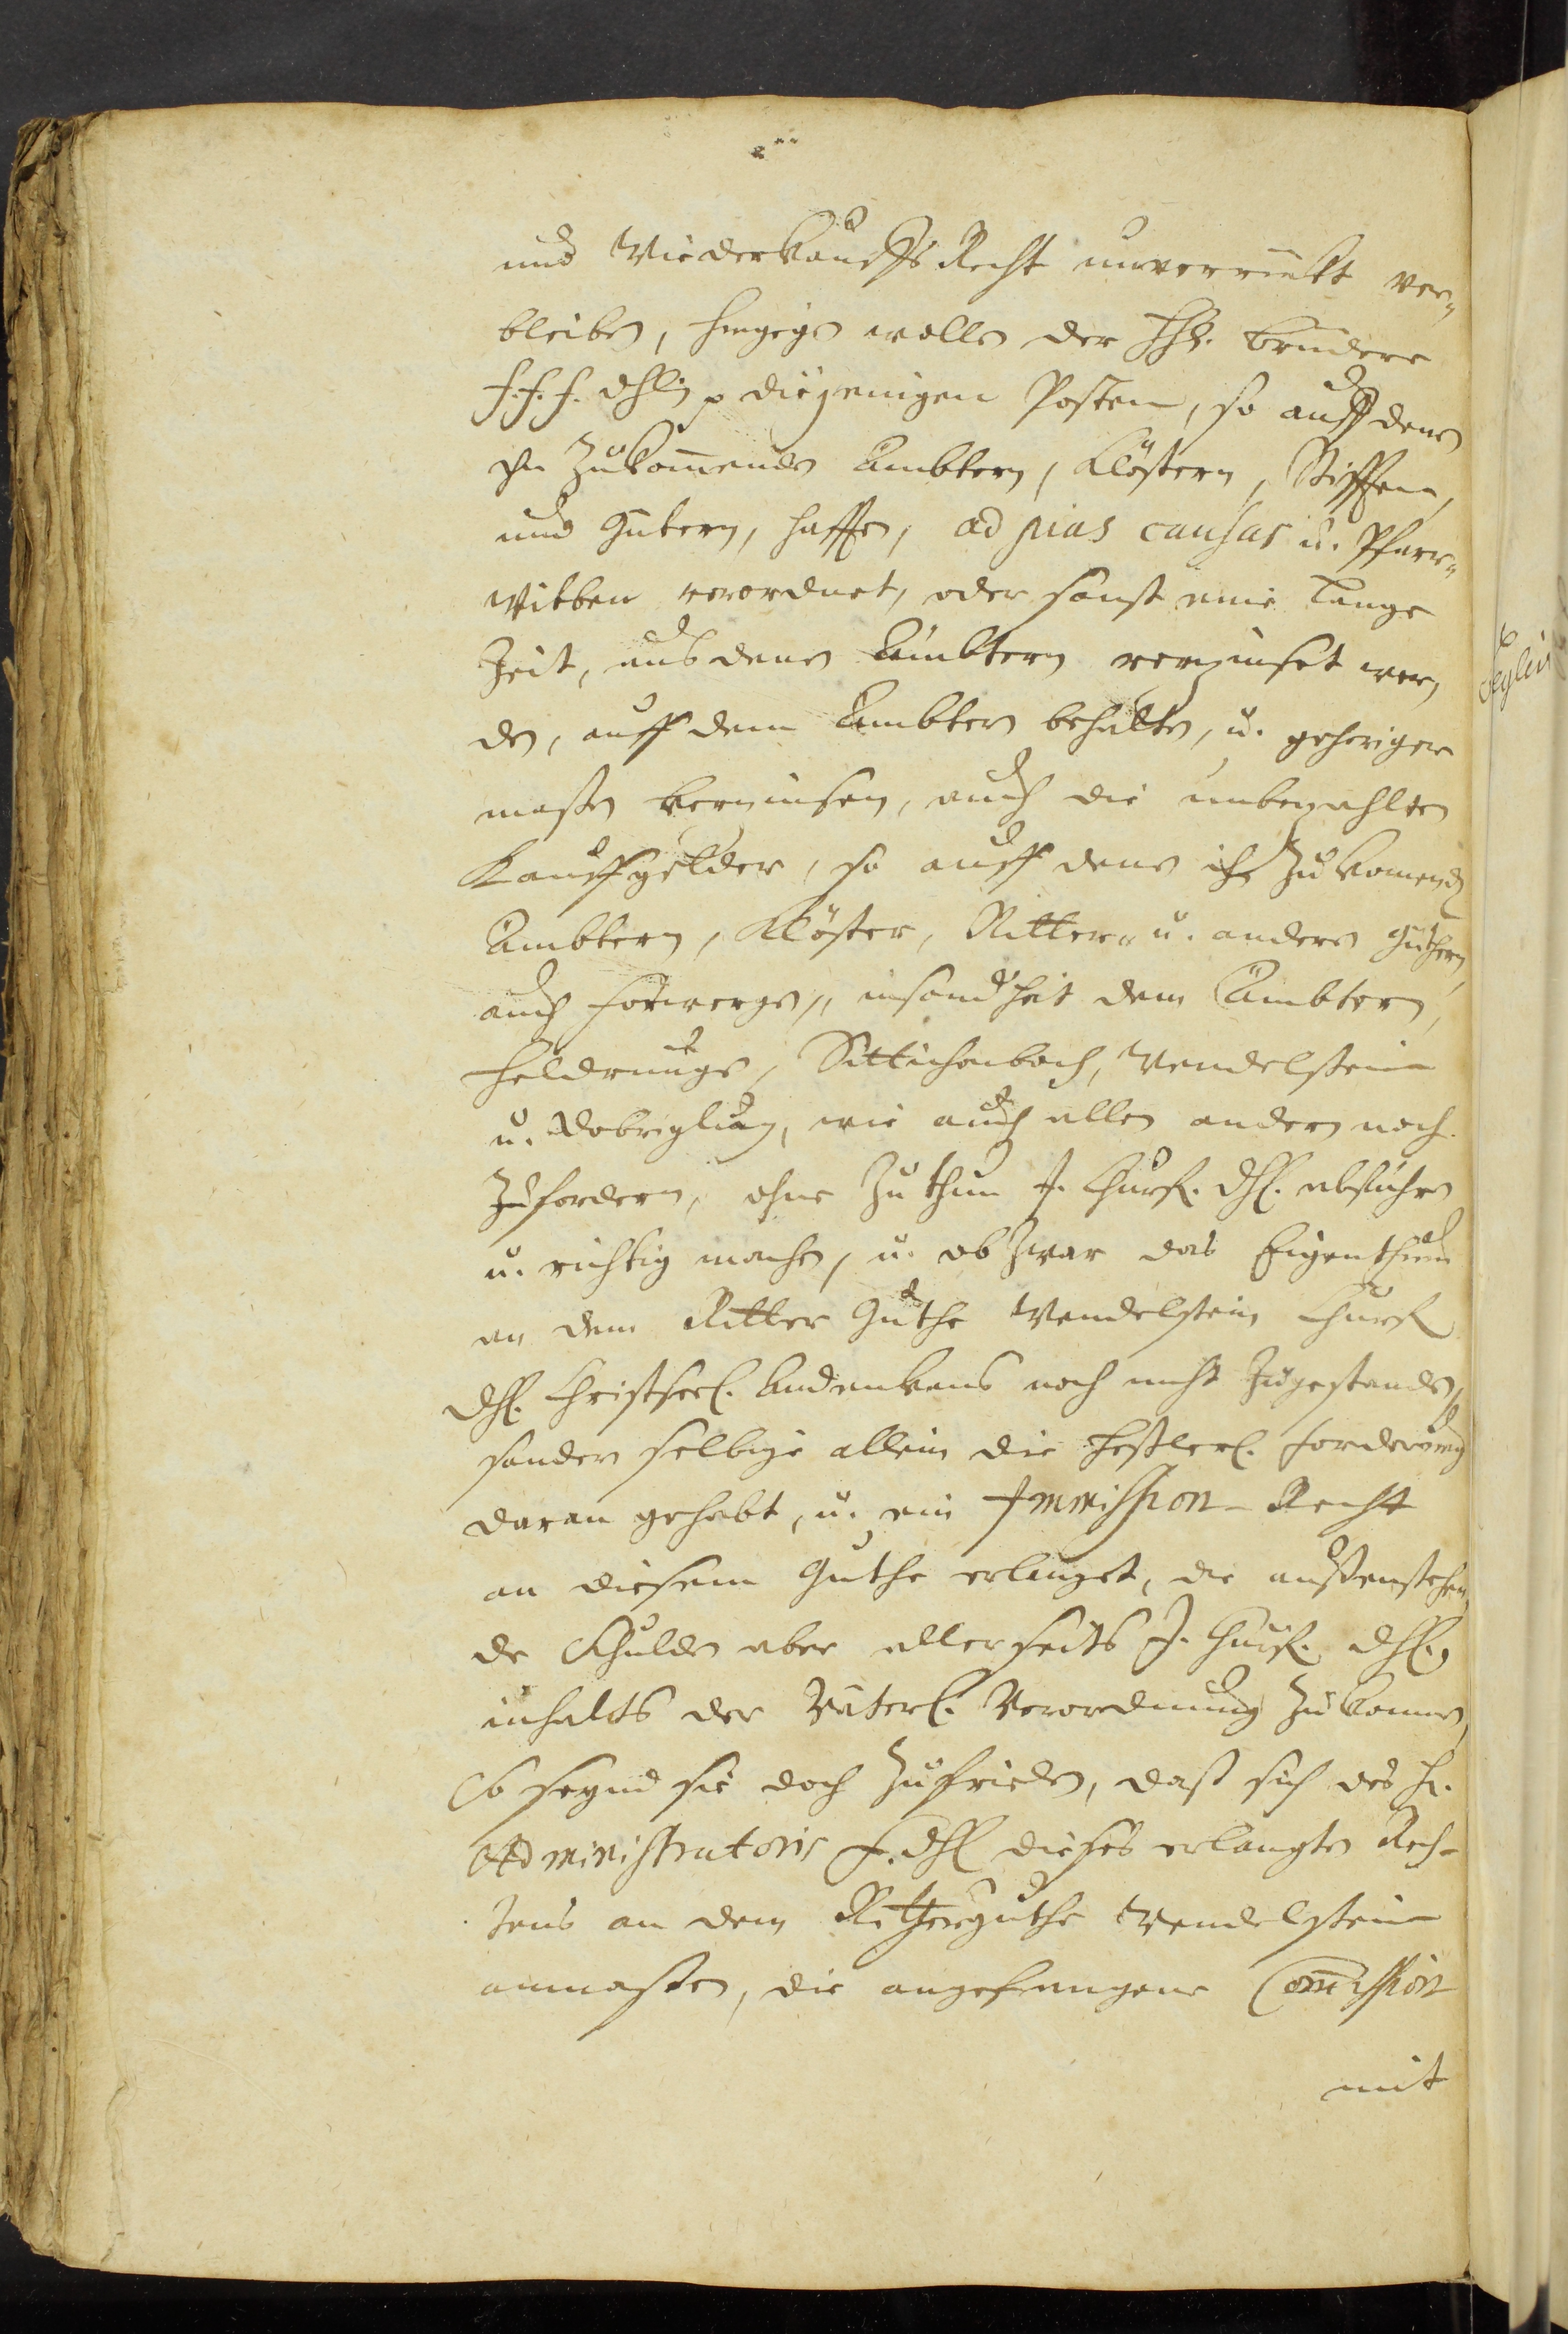 und Wiederkauffs Recht unverrückt ver-
bleiben, hingegen wollen der HH. Brüdere
f. f. f. Dhl. diejenigen Posten, so auff denen
Ihn zukommenden Ämbtern, Klöstern, Stifften,
und Gütern, hafften, ad pias causas u. Pfarr-
Witben verordnet, oder sonst eine lange
Zeit, aus denen Ämbtern verzinset wor-
den, auff denen Ämbtern behalten, u. gehöriger
maßen verzinsen, auch die unbezahlten
Kauffgelder, so auff denen ihn zukomenden
Ämbtern, Klöster, Ritter- u. andern Güthern,
auch Forwergen, insonderheit dem Ämbtern,
Heldrungen, Sittichenbach, Wendelstein
u. Dobrilugk, wie auch allen andern noch
zufordern, ohne Zuthun J. Churf. Dhl. abführen
u. richtig machen, u. ob zwar das Eigenthumb
an dem Ritter Guthe Wendelstein Churf.
Dhl. Christseel. Andenkens noch nicht zugestanden,
sondern selbige allein die Heßlerl. Forderung
daran gehabt, u. ein Immission-Recht
an diesem Guthe erlanget, die außenstehen-
de Schulden aber allerseits J. Churf. Dhl.
inhalts der Väterl. Verordnung zukommen,
So seynd sie doch zufrieden, daß sich des H.
Administratoris f. Dhl dieses erlangten Rech-
tens an dem Ritterguthe Wendelstein
anmaßen, die angefangene Com̅ission
mit